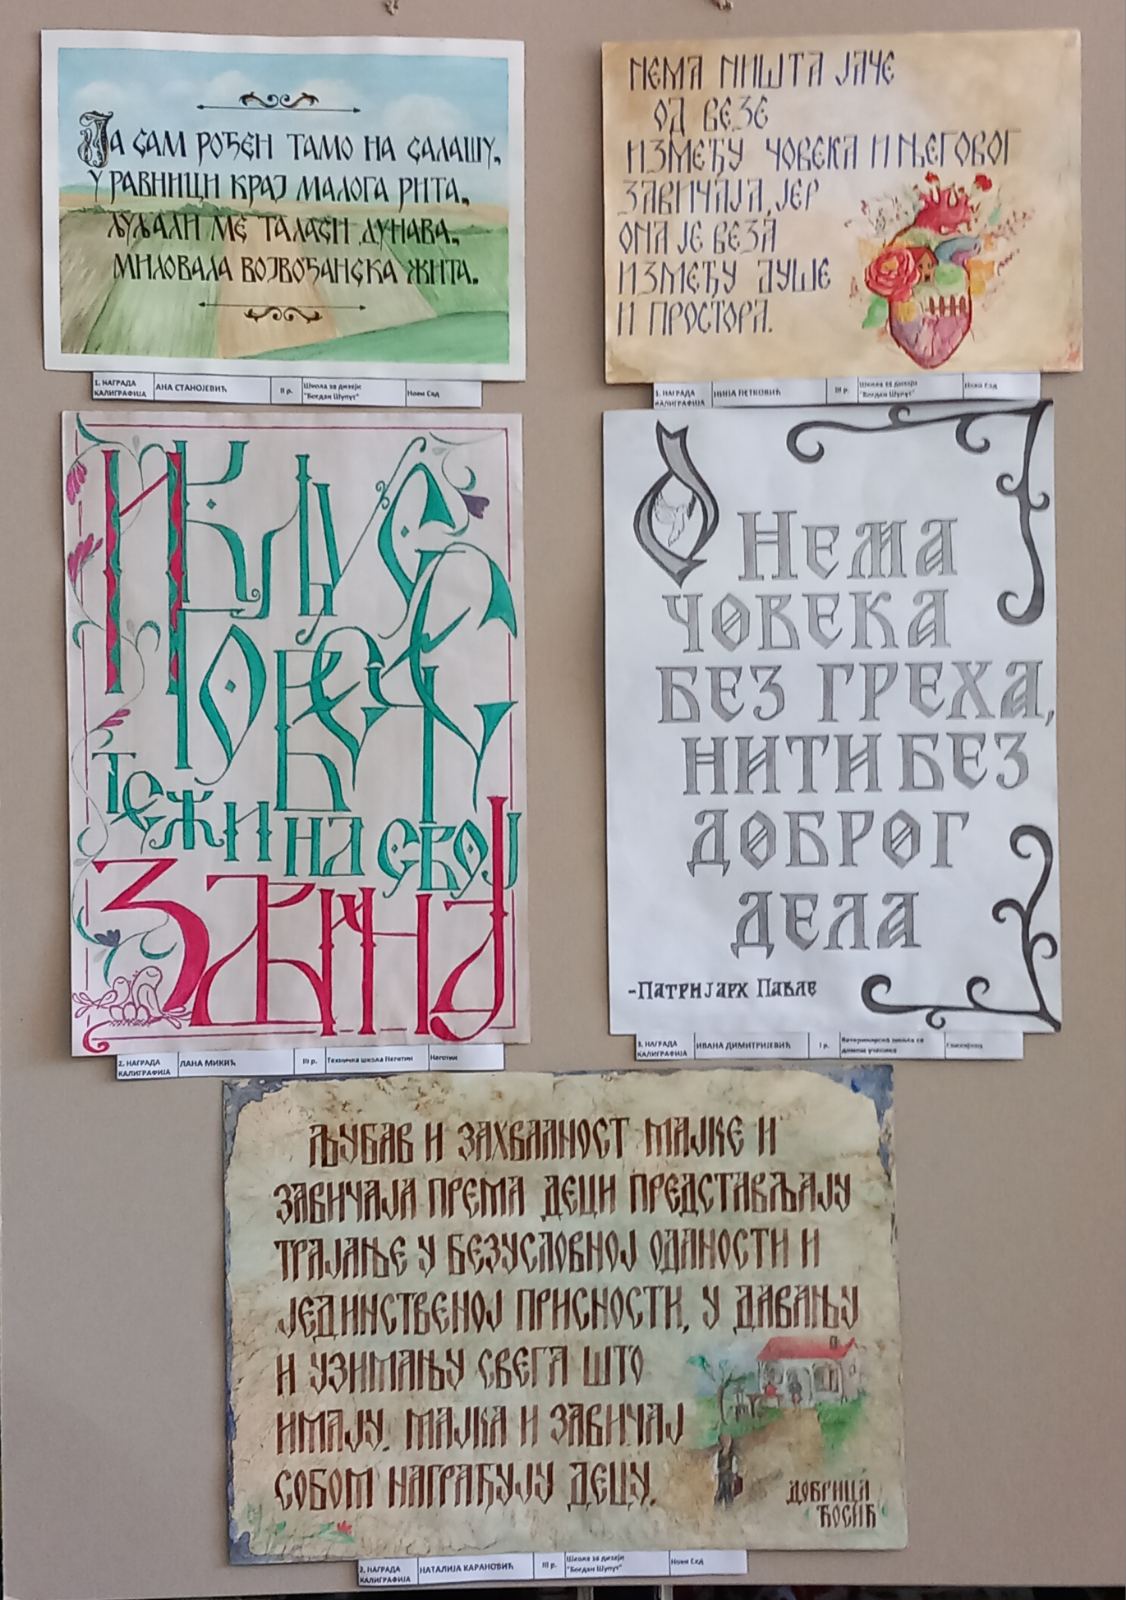 Ја сам рођен тамо на салашу,
у равници крај малога рита,
љуљали ме таласи Дунава,
миловала војвођанска жита.
1. НАГРАДА
КАЛИГРАФИЈА
АНА СТАНОЈЕВИЋ
II р.
Школа за дизајн
"Богдан Шупут"
Нови Сад
НЕМА НИШТА ЈАЧЕ
ОД ВЕЗЕ
ИЗМЕЂУ ЧОВЕКА И ЊЕГОВОГ
ЗАВИЧАЈА, ЈЕР
ОНА ЈЕ ВЕЗА
ИЗМЕЂУ ДУШЕ
И ПРОСТОРА.
3. НАГРАДА
КАЛИГРАФИЈА
НИНА ПЕТКОВИЋ
III р.
Школа за дизајн
"Богдан Шупут"
Нови Сад
И КЉУС
ТЕЖИ НА СВОЈ
2. НАГРАДА
КАЛИГРАФИЈА
ЛАНА МИКИЋ
III р.
Техничка школа Неготин
Неготин
НЕМА
ЧОВЕКА
БЕЗ ГРЕХА,
НИТИ БЕЗ
ДОБРОГ
ДЕЛА
-ПАТРИЈАРХ ПАВЛЕ
3. НАГРАДА
КАЛИГРАФИЈА
ИВАНА ДИМИТРИЈЕВИЋ
I р.
Ветеринарска школа са
домом ученика
ЉУБАВ И ЗАХВАЛНОСТ МАЈКЕ И
ЗАВИЧАЈА ПРЕМА ДЕЦИ ПРЕДСТАВЉАЈУ
ТРАЈАЊЕ У БЕЗУСЛОВНОЈ ОДАНОСТИ И
ЈЕДИНСТВЕНОЈ ПРИСНОСТИ, У ДАВАЊУ
И УЗИМАЊУ СВЕГА ШТО
ИМАЈУ. МАЈКА И ЗАВИЧАЈ
СОБОМ НАГРАЂУЈУ ДЕЦУ.
ДОБРИЦА
ЋОСИЋ
2. НАГРАДА
КАЛИГРАФИЈА
НАТАЛИЈА КАРАНОВИЋ
III р.
Школа за дизајн
"Богдан Шупут"
Нови Сад